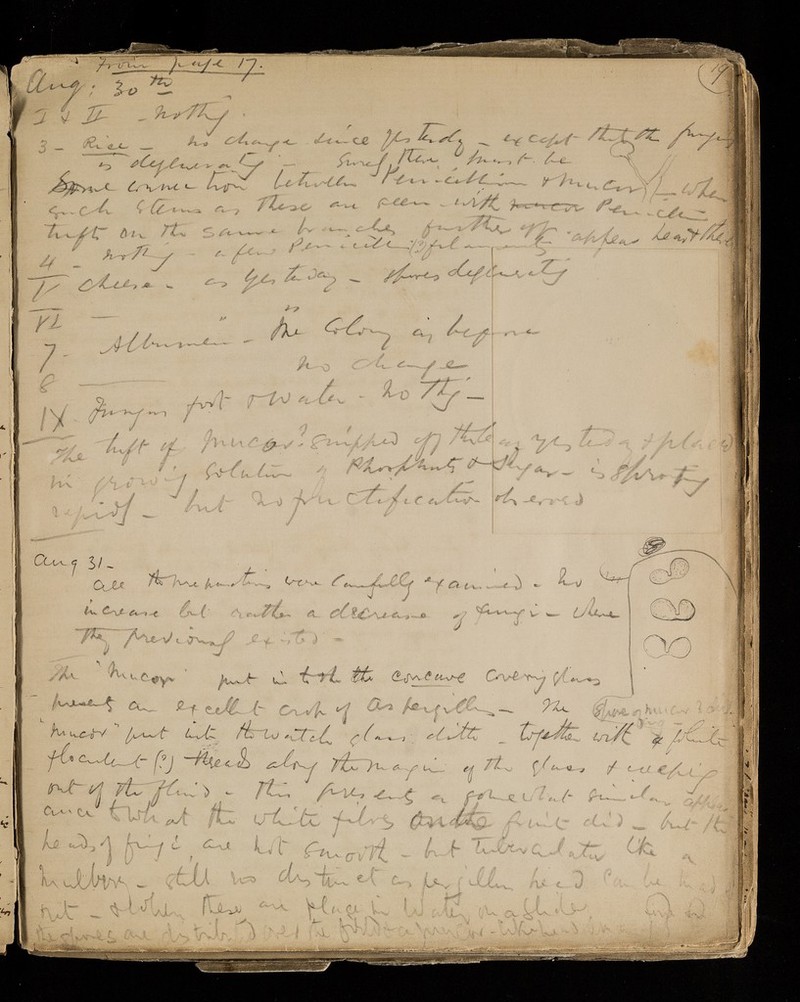 From page 17.
19
Aug: 30th
I & II - Nothg.
3 - Rice - no change since yesterday - except that the fungus
is degeneratg - Surely there must be
Some connection between Penicillium & Mucor - when
such stems as these are seen - with mucor Penicillium
tufts on the same branches further off appear heart the
4 - nothg - a few Penicillium (?) filaments
V Cheese - as yesterday - spores degeneratg
VI —
7. Albumen - The Colony as before
no change
8 —
IX. Fungus foot & Water - No Thg -
The tuft of Mucor? snipped off these as yesterday & placed
in growing solution of Phosphates & Sugar - is sproutg
rapidly - but no fructification observed
Aug 31 -
all the preparations were Carefully examined - No
increase but rather a decrease of fungi - where
they previously existed -
The "Mucor" put in to the the concave covering glass
presents an excellent crop of Aspergillus - The
Spore of mucor
"Mucor" put into the watch glass ditto - together with a white
floculent (?) threads along the margin of the glass & creeping
out of the fluid - this presents a somewhat similar appear
ance to what the white fibres on the fruit did - but the
heads of fungi are not smooth - but tuberculated like a
Mulberry - still no distinct aspergillus head can be made
out - & when these are placed in Water on a slide,
the spores are distributed over the field